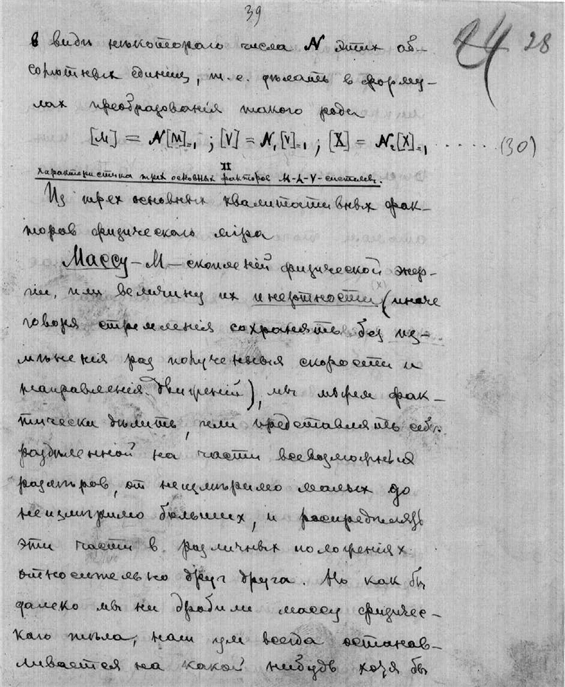 39
24 28
в виды нѣкотораго числа N этих аб-
солютных единиц, т. е. дѣлать в форму-
лах преобразованія такого рода
[M] = N[M]=1 ; [V] = N₁[V]=1 ; [X] = N₂[X]=1 ...... (30)
II
Характеристика трех основных факторов M-L-V-системы.
Из трех основных квалитативных фак-
торов физическаго міра
Массу – M – скопленій физической энер-
гіи, или величину их инертности (х) (иначе
говоря стремленія сохранять без из-
мѣненія раз полученныя скорости и
направленія движеній), мы можем фак-
тически дѣлить, или представлять себѣ
раздѣленной на части всевозможных
размѣров, от неизмѣримо малых до
неизмѣримо больших, и распредѣлять
эти части в различных положеніях
относительно друг друга. Но как бы
далеко мы ни дробили массу физичес-
каго тѣла, наш ум всегда останав-
ливается на какой нибудь хотя бы